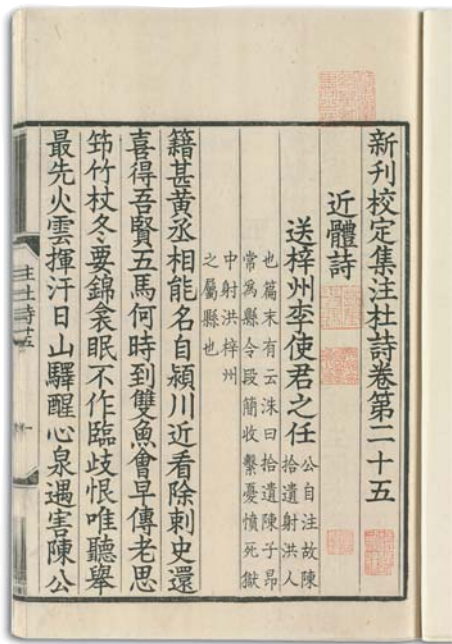 新刊校定集注杜詩卷第二十五
近體詩
送梓州李使君之任
公自注故陳
拾遺射洪人
也篇末有云洙曰拾遺陳子昂
常爲縣令段簡收繫憂憤死獄
中射洪梓州
之屬縣也
籍甚黃丞相能名自潁川近看除刺史還
喜得吾賢五馬何時到雙魚會早傳老思
筇竹杖冬要錦衾眠不作臨歧恨唯聽舉
最先火雲揮汗日山驛醒心泉遇害陳公